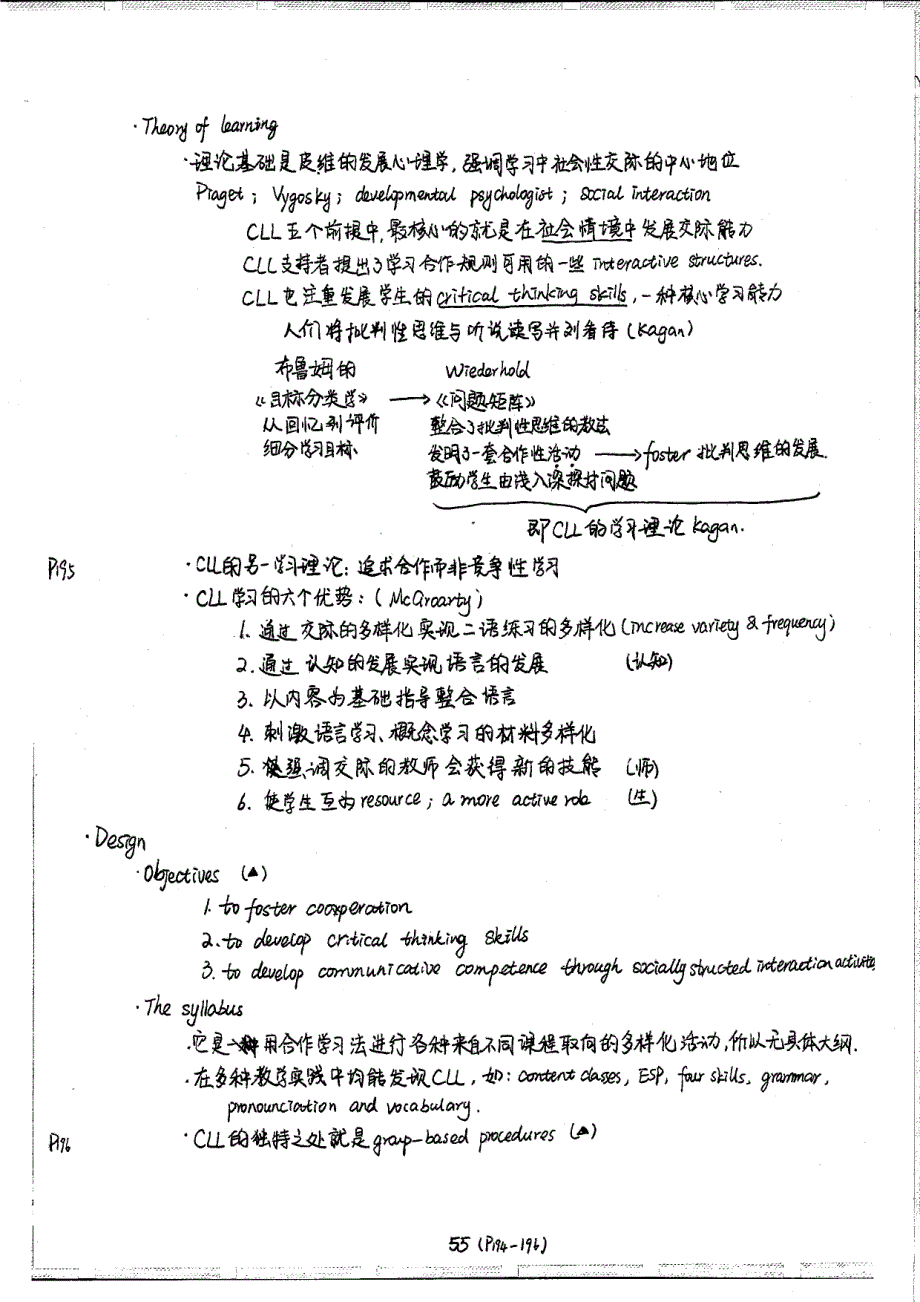 ·Theory of learning
·理论基础是皮维的发展心理学,强调学习中社会性交际的中心地位
Piaget; Vygosky; developmental psychologist; social interaction
CLL五个前提中,最核心的就是在社会情境中发展交际能力
CLL支持者提出了学习合作规则可用的一些interactive structures.
CLL也注重发展学生的critical thinking skills,一种核心学习能力
人们将批判性思维与听说读写并列看待(Kagan)
布鲁姆的 Wiederhold
《目标分类学》 → 《问题矩阵》
从回忆到评价 整合了批判性思维的教法
细分学习目标 发明了一套合作性活动 → foster批判思维的发展.
鼓励学生由浅入深探讨问题
即CLL的学习理论Kagan.
P195 ·CLL的另一学习理论:追求合作而非竞争性学习
·CLL学习的六个优势:(McGroarty)
1.通过交际的多样化实现二语练习的多样化(increase variety & frequency)
2.通过认知的发展实现语言的发展 (认知)
3.以内容为基础指导整合语言
4.刺激语言学习、概念学习的材料多样化
5.强调交际的教师会获得新的技能 (师)
6.使学生互为resource; a more active role (生)
·Design
·Objectives (▲)
1. to foster cooperation
2. to develop critical thinking skills
3. to develop communicative competence through socially structed interaction activites
·The syllabus
·它是一种用合作学习法进行各种来自不同课程取向的多样化活动,所以无具体大纲.
·在多种教学实践中均能发现CLL,如:content classes, ESP, four skills, grammar,
pronounciation and vocabulary.
P196 ·CLL的独特之处就是group-based procedures (▲)
55 (P194-196)